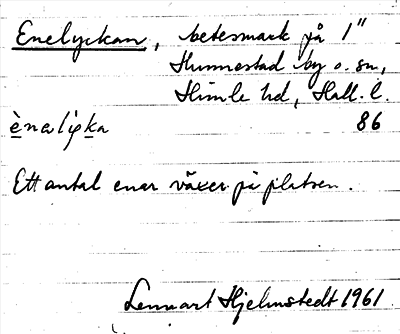 Enelyckan, betesmark på 1"
Hunnestad by o. sn,
Himle hd, Hall. l.
86
ènalỳka
Ett antal enar växer på platsen.
Lennart Hjelmstedt 1961